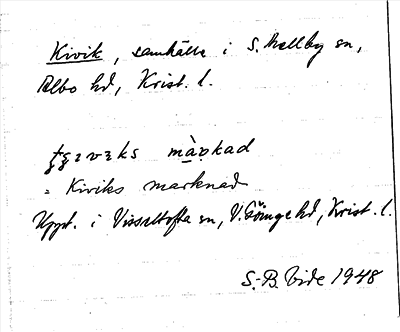 Kivik, samhälle i S. Mellby sn,
Albo hd, Krist. l.
= Kiviks marknad
Uppt. i Visseltofta sn, V. Göinge hd, Krist. l.
S.-B. Vide 1948